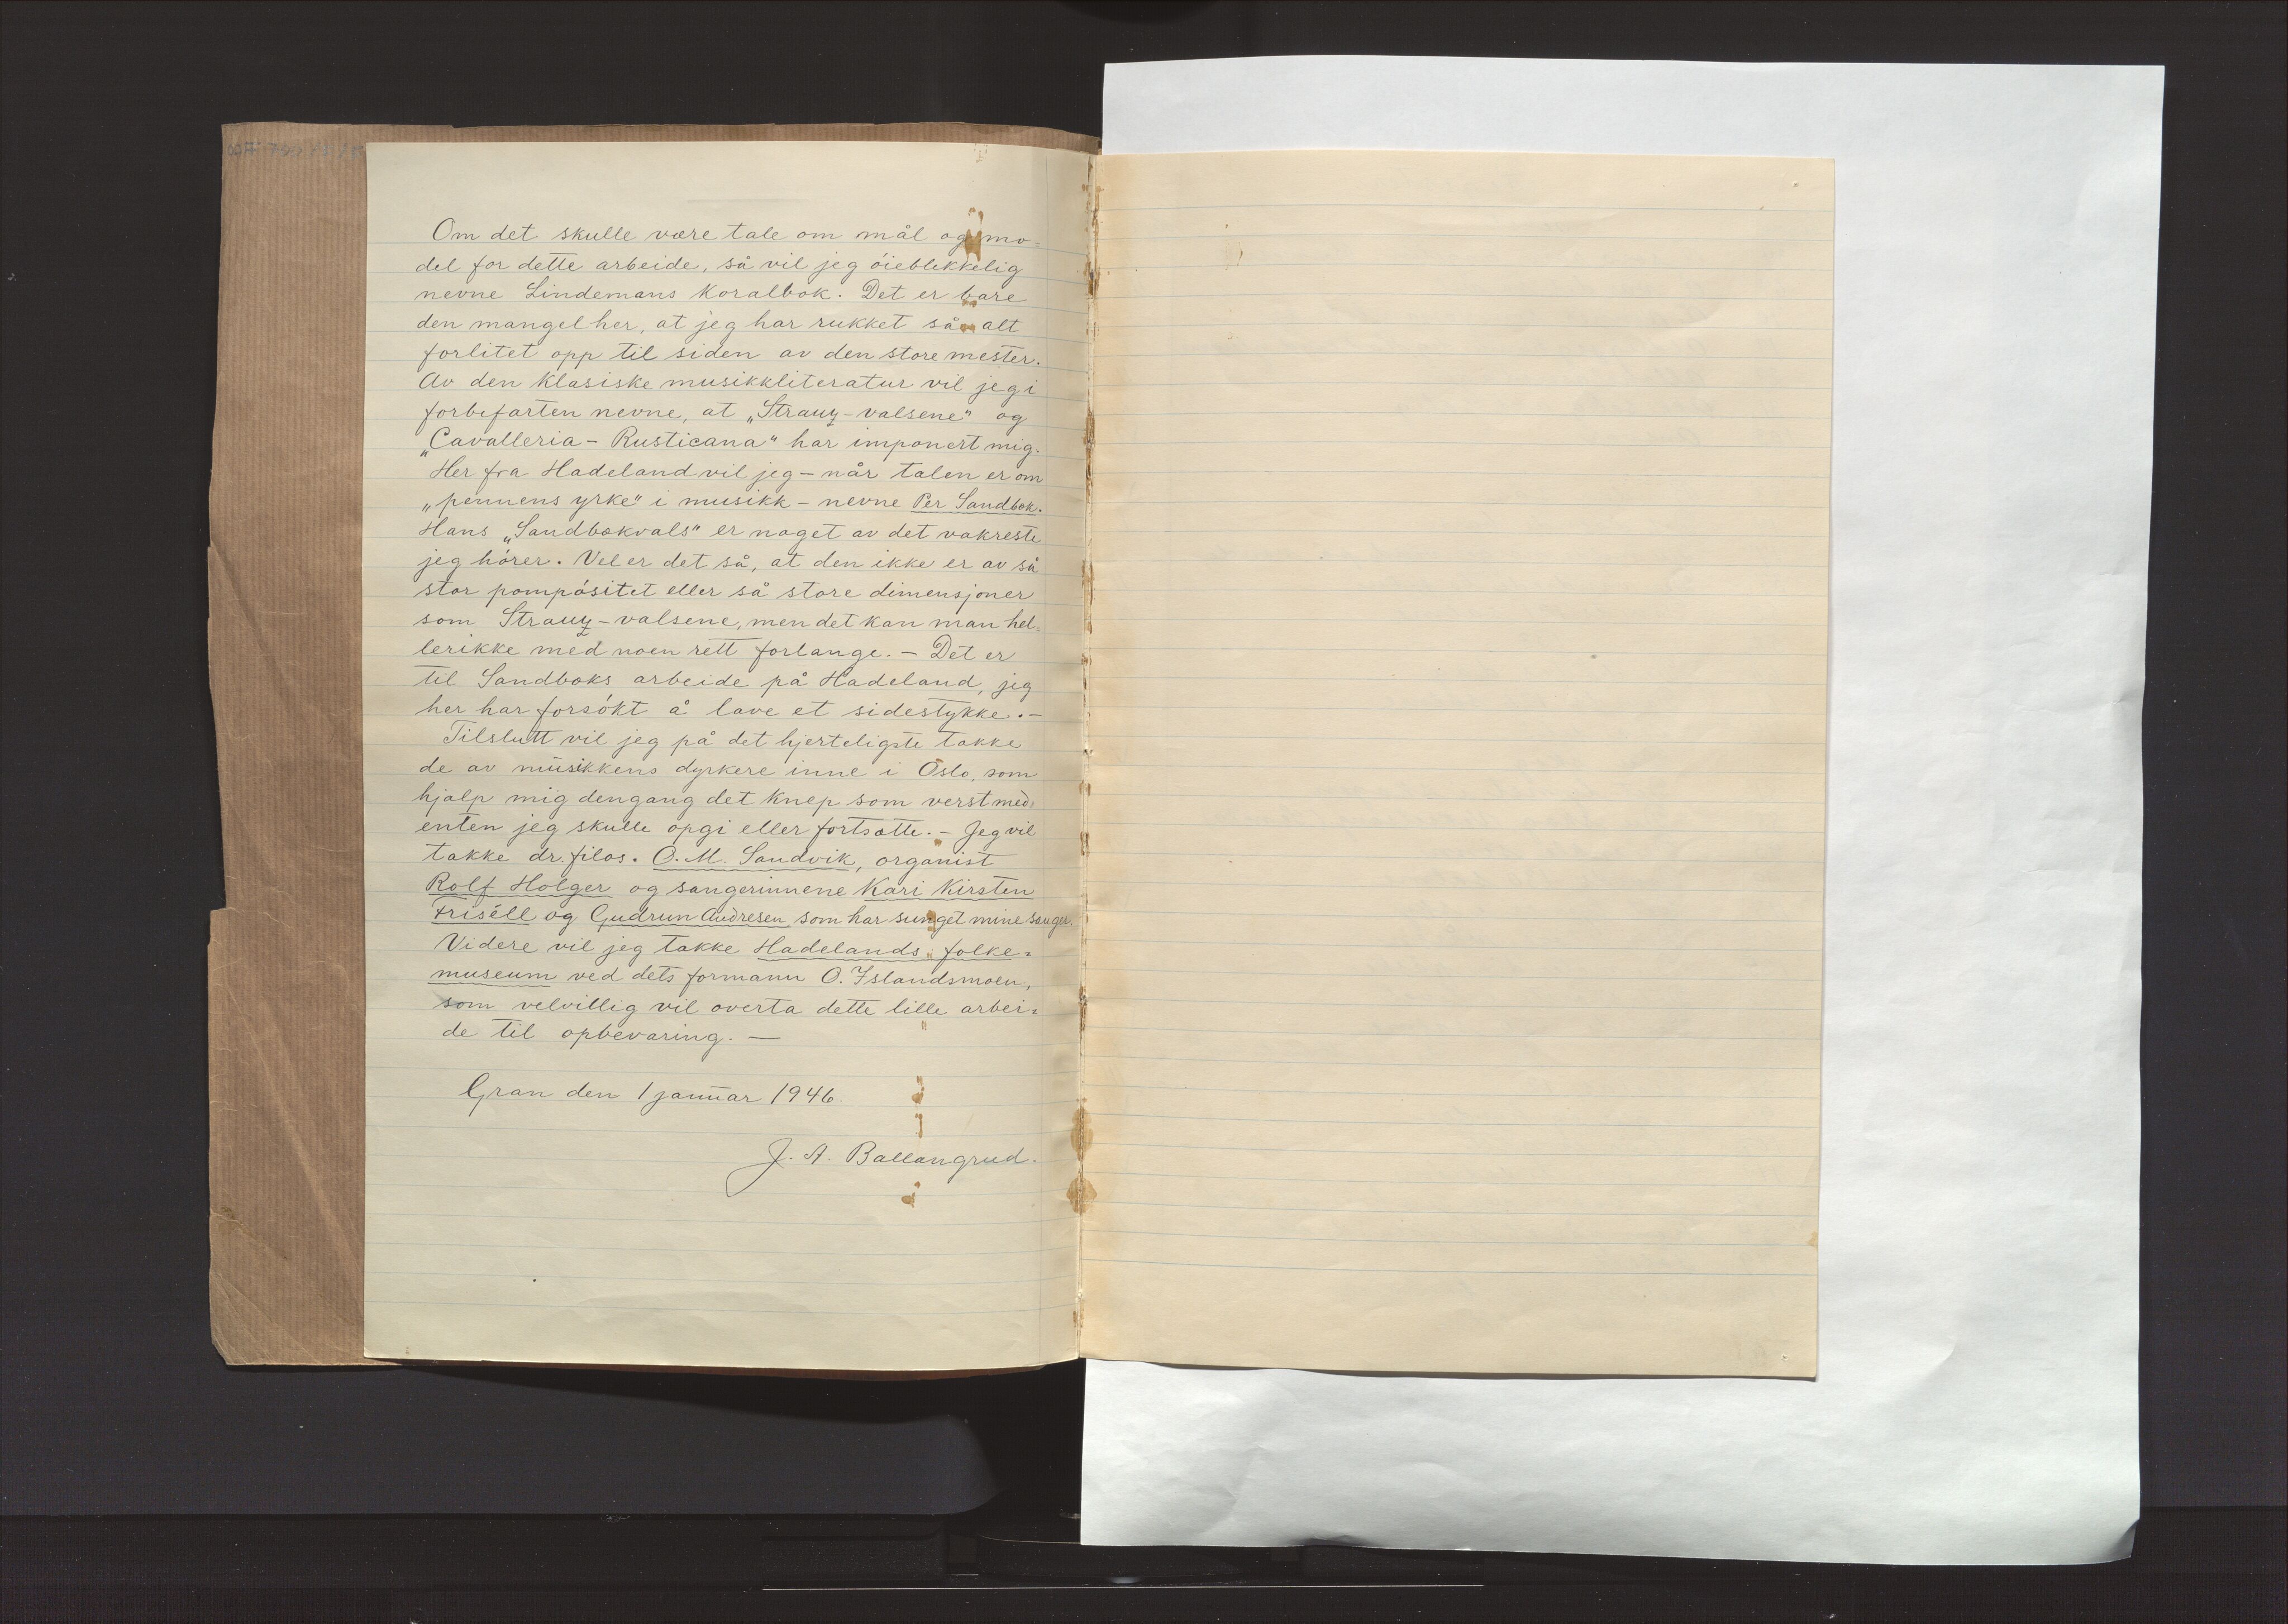 Om det skulle være tale om mål og mo=
del for dette arbeide, så vil jeg óieblekkelig
nevne Lindemans Koralbok. Det er bare
den mangel her, at jeg har rukket så alt
forlitet opp til siden av den store mester.
Av den klasiske musikkliteratur vil jeg i
forbifarten nevne, at „Strauz-valsene" og
„Cavalleria - Rusticana" har imponert mig.
Her fra Hadeland vil jeg - når talen er om
„pennens yrke" i musikk - nevne Per Sandbok.
Hans „Sandbokvals" er noget av det vakreste
jeg hórer. Vel er det så, at den ikke er av så
stor pompósitet eller så store dimensjoner
som Strauz-valsene, men det kan man hel=
lerikke med noen rett forlange. - Det er
til Sandboks arbeide på Hadeland, jeg
her har forsókt å lave et sidestykke. -
Tilslutt vil jeg på det hjerteligste takke
de av musikkens dyrkere inne i Oslo, som
hjalp mig dengang det knep som verst med,
enten jeg skulle opgi eller fortsætte. - Jeg vil
takke dr. filos. O. M. Sandvik, organist
Rolf Holger og sangerinnene Kari Kirsten
Friséll og Gudrun Andresen som har sunget mine sanger.
Videre vil jeg takke Hadelands folke=
museum ved dets formann O. Islandsmoen,
som velvillig vil overta dette lille arbei=
de til opbevaring. -
Gran den 1 januar 1946.
J. A. Ballangrud.